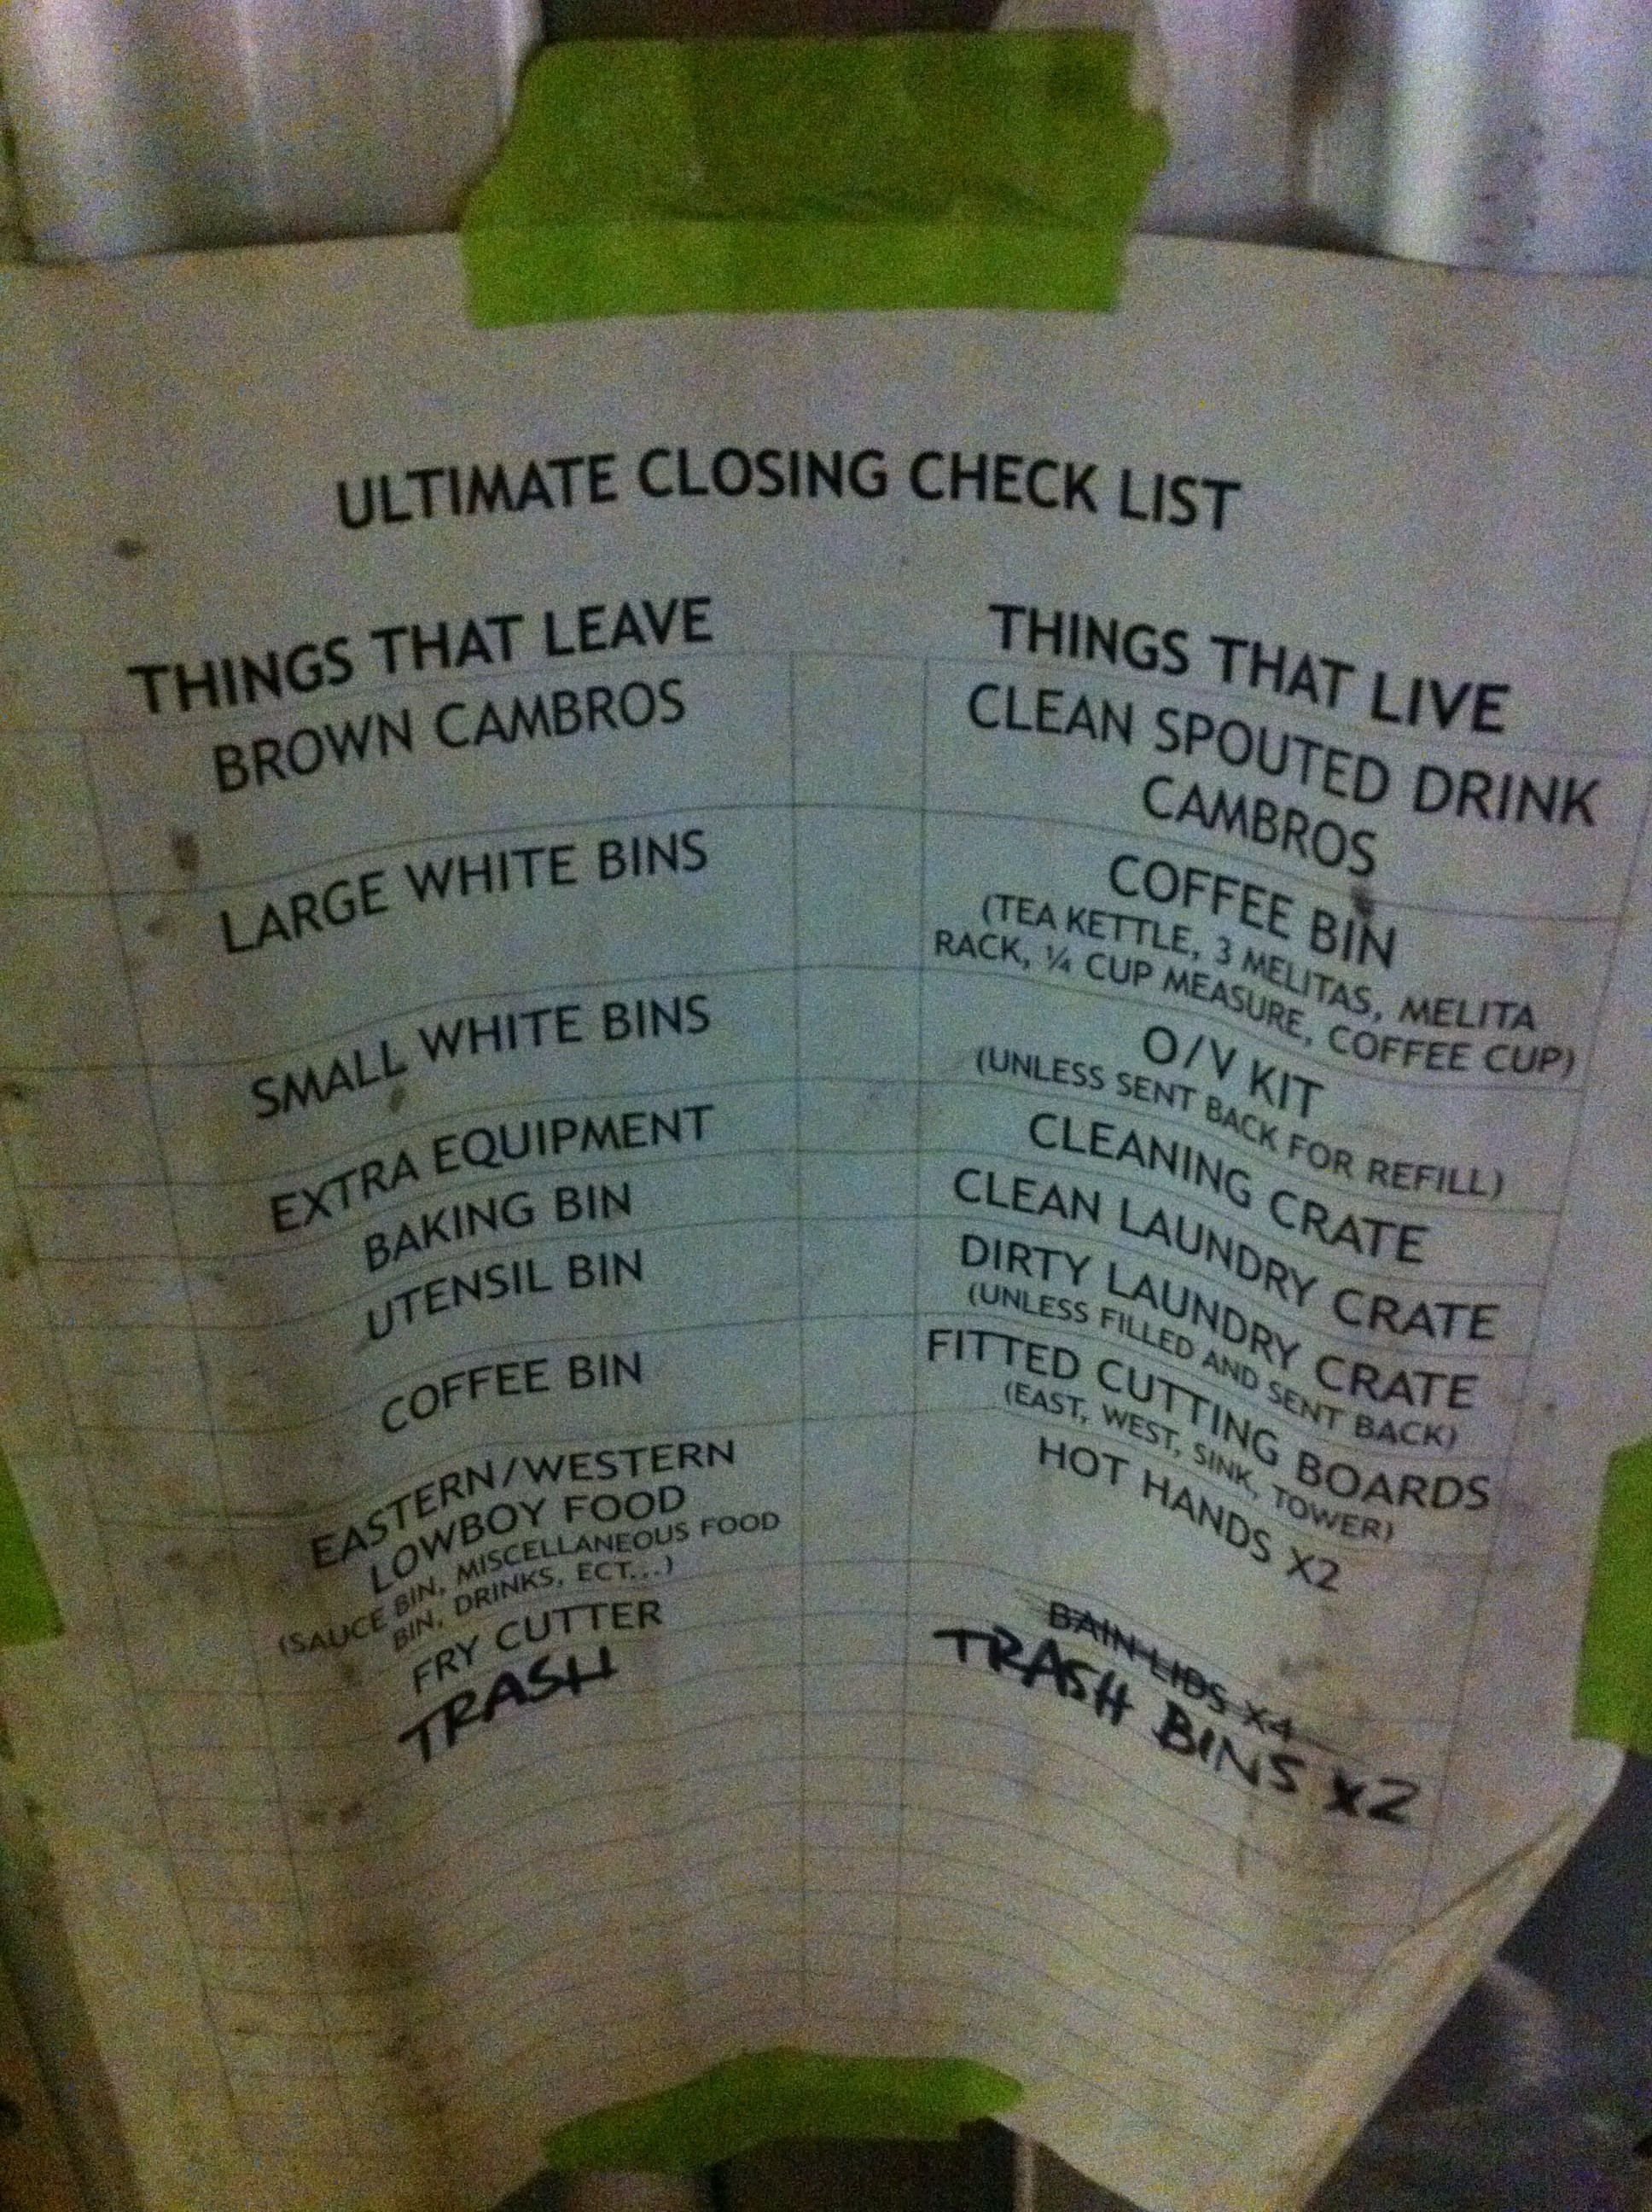 ULTIMATE CLOSING CHECK LIST
THINGS THAT LEAVE
BROWN CAMBROS
LARGE WHITE BINS
SMALL WHITE BINS
EXTRA EQUIPMENT
BAKING BIN
UTENSIL BIN
COFFEE BIN
EASTERN/WESTERN
LOWBOY FOOD
(SAUCE BIN, MISCELLANEOUS FOOD
BIN, DRINKS, ECT...)
FRY CUTTER
TRASH
THINGS THAT LIVE
CLEAN SPOUTED DRINK
CAMBROS
COFFEE BIN
(TEA KETTLE, 3 MELITAS, MELITA
RACK, ¼ CUP MEASURE, COFFEE CUP)
O/V KIT
(UNLESS SENT BACK FOR REFILL)
CLEANING CRATE
CLEAN LAUNDRY CRATE
DIRTY LAUNDRY CRATE
(UNLESS FILLED AND SENT BACK)
FITTED CUTTING BOARDS
(EAST, WEST, SINK, TOWER)
HOT HANDS X2
BAIN LIDS X4
TRASH BINS x2